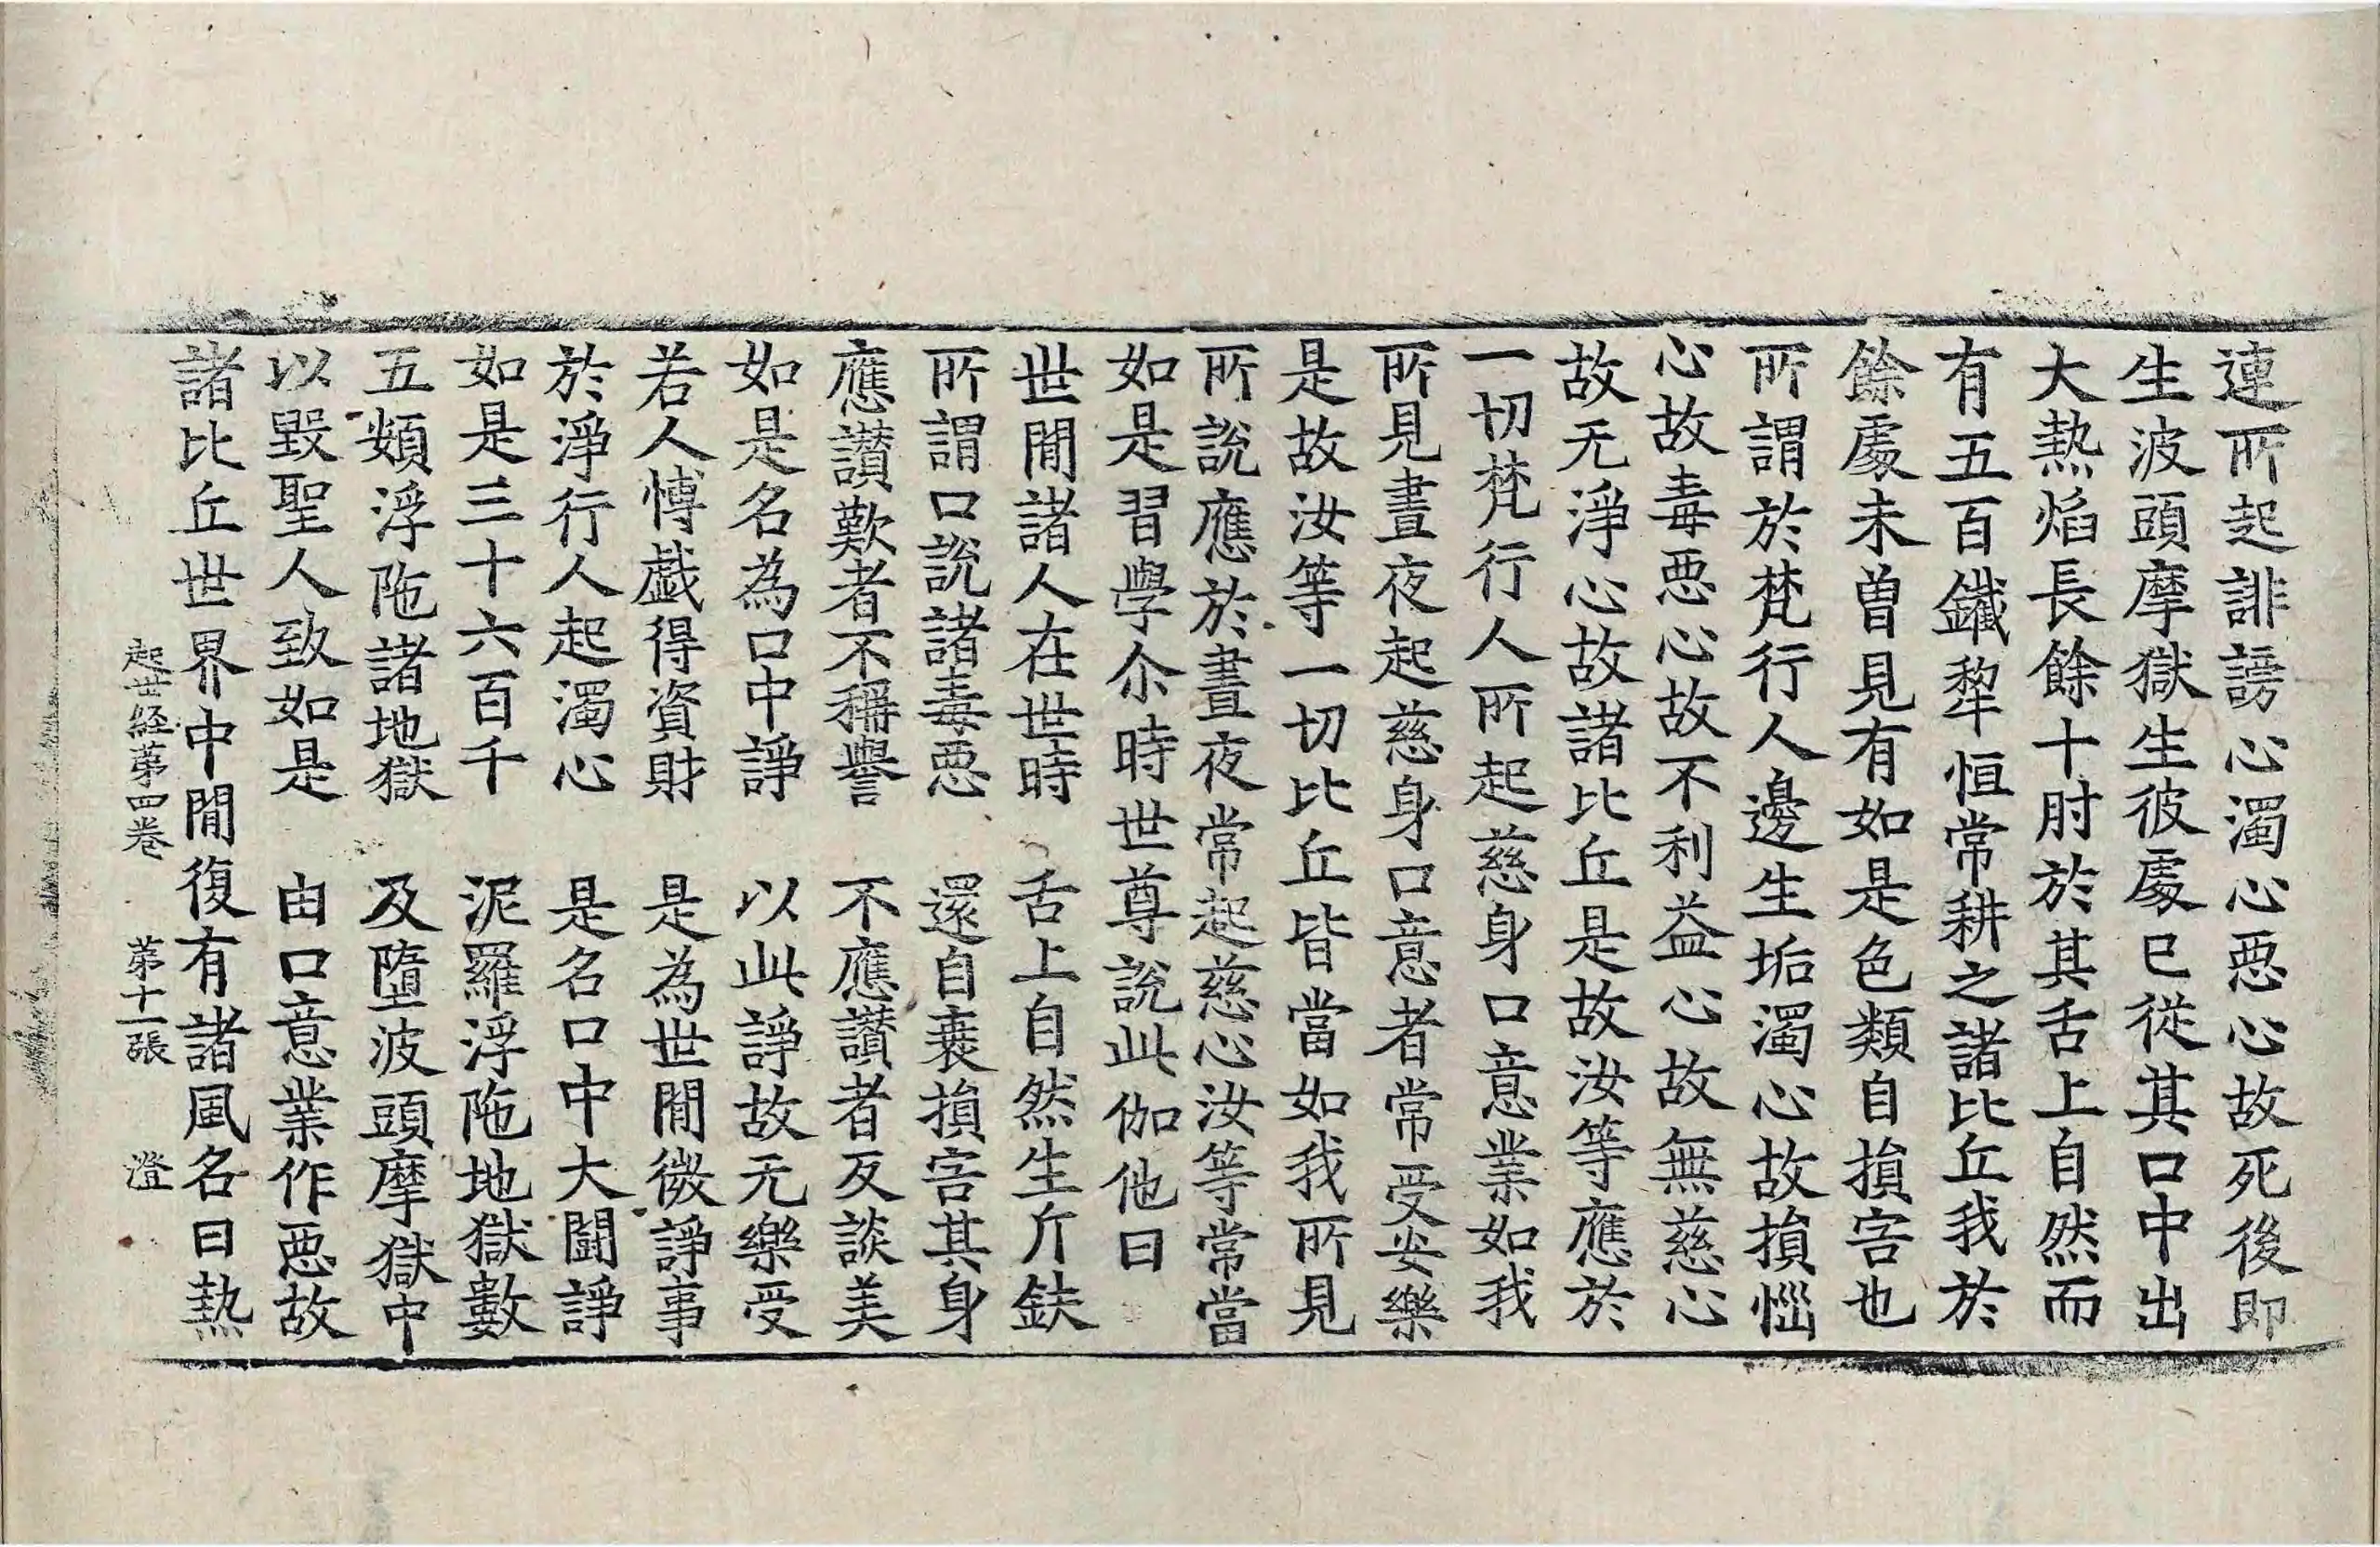 連所起誹謗心濁心惡心故死後即
生波頭摩獄生彼處已從其口中出
大熱焰長餘十肘於其舌上自然而
有五百鐵犂恒常耕之諸比丘我於
餘處未曾見有如是色類自損害也
所謂於梵行人邊生垢濁心故損惱
心故毒惡心故不利益心故無慈心
故无淨心故諸比丘是故汝等應於
一切梵行人所起慈身口意業如我
所見晝夜起慈身口意者常受安樂
是故汝等一切比丘皆當如我所見
所說應於晝夜常起慈心汝等常當
如是習學尒時世尊說此伽他曰
世閒諸人在世時　舌上自然生斤鈇
所謂口說諸毒惡　還自衰損害其身
應讃歎者不稱譽　不應讃者反談美
如是名為口中諍　以此諍故无樂受
若人博戲得資財　是為世閒微諍事
於淨行人起濁心　是名口中大鬪諍
如是三十六百千　泥羅浮陁地獄數
五頞浮陁諸地獄　及墮波頭摩獄中
以毀聖人致如是　由口意業作惡故
諸比丘世界中閒復有諸風名曰熱
起世経苐四卷　苐十一張　澄